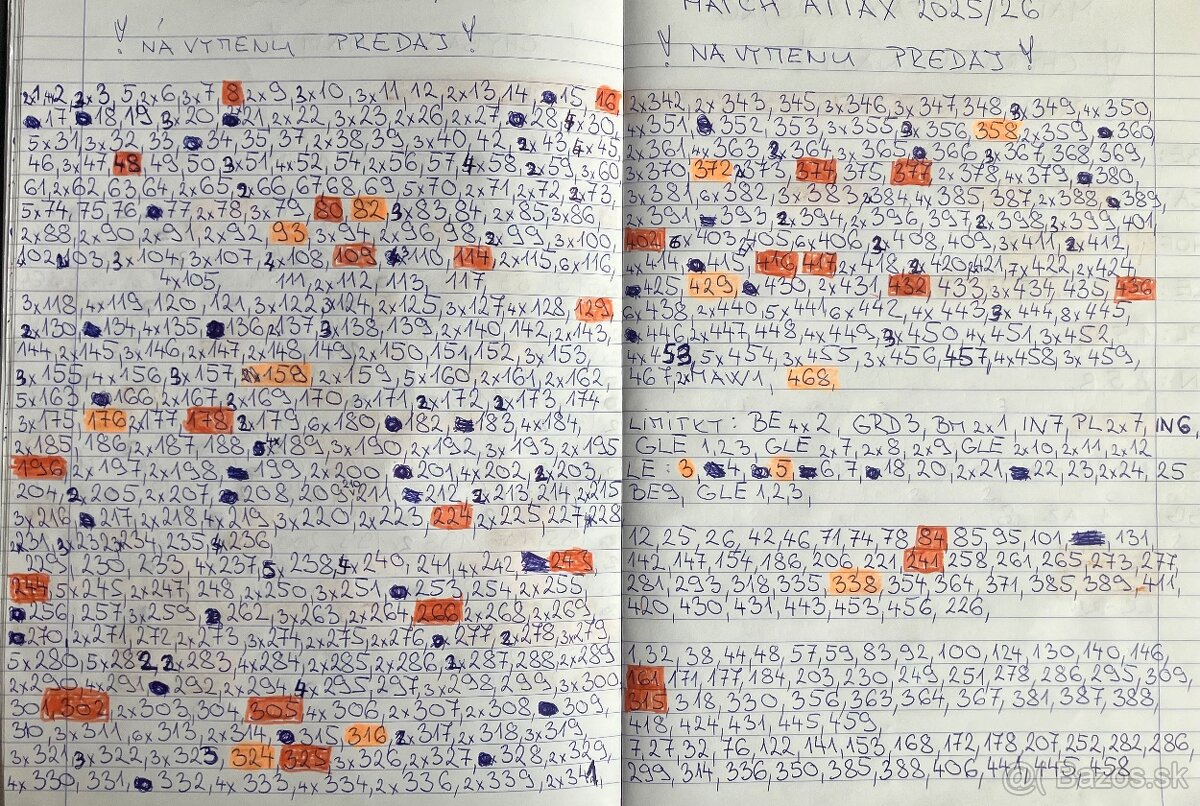 ! NA VÝMENU PREDAJ !
2x1,4x2, 3, 5, 2x6, 3x7, 8, 2x9, 3x10, 3x11, 12, 2x13, 14, 15, 16
17, 18, 19, 3x20, 21, 2x22, 3x23, 2x26, 2x27, 28, 4x30,
5x31, 3x32, 33, 34, 35, 37, 2x38, 39, 3x40, 42, 2x43, 4x45,
46, 3x47, 48, 49, 50, 3x51, 4x52, 54, 2x56, 57, 4x58, 2x59, 3x60
61, 2x62, 63, 64, 2x65, 2x66, 67, 68, 69, 5x70, 2x71, 2x72, 2x73,
5x74, 75, 76, 77, 2x78, 3x79, 80, 82, 3x83, 84, 2x85, 3x86
2x88, 2x90, 2x91, 2x92, 93, 3x94, 2x96, 98, 2x99, 3x100,
102, 103, 3x104, 3x107, 2x108, 109, 110, 114, 2x115, 6x116,
4x105, 111, 2x112, 113, 117
3x118, 4x119, 120, 121, 3x122, 3x124, 2x125, 3x127, 4x128, 129
2x130, 134, 4x135, 136, 2x137, 3x138, 139, 2x140, 142, 2x143,
144, 2x145, 3x146, 2x147, 2x148, 149, 2x150, 151, 152, 3x153,
3x155, 4x156, 3x157, 158, 2x159, 5x160, 2x161, 2x162,
5x163, 166, 2x167, 2x169, 170, 3x171, 2x172, 2x173, 174
3x175, 176, 2x177, 178, 2x179, 6x180, 182, 183, 4x184,
2x185, 186, 2x187, 188, 4x189, 3x190, 2x192, 3x193, 2x195
196, 2x197, 2x198, 199, 2x200, 201, 4x202, 2x203,
204, 2x205, 2x207, 208, 209, 210, 211, 212, 2x213, 214, 2x215
3x216, 217, 2x218, 4x219, 3x220, 2x223, 224, 2x225, 227, 228
2x231, 3x232, 234, 235, 4x236
229, 230, 233, 4x237, 5x238, 4x240, 241, 4x242, 243,
244, 5x245, 2x247, 248, 2x250, 3x251, 253, 254, 2x255,
256, 257, 3x259, 262, 3x263, 2x264, 266, 2x268, 2x269
270, 2x271, 272, 2x273, 3x274, 2x275, 2x276, 277, 2x278, 3x279,
5x280, 5x282, 2x283, 4x284, 2x285, 2x286, 2x287, 288, 2x289
2x290, 4x291, 292, 2x294, 4x295, 297, 3x298, 299, 3x300
301, 302, 2x303, 304, 305, 4x306, 2x307, 2x308, 309,
310, 3x311, 6x313, 2x314, 315, 316, 2x317, 2x318, 3x319,
3x321, 3x322, 3x323, 324, 325, 3x326, 2x327, 328, 2x329,
4x330, 331, 332, 4x333, 4x334, 2x336, 2x339, 2x341
MATCH ATTAX 2025/26
! NA VÝMENU PREDAJ !
2x342, 2x343, 345, 3x346, 3x347, 348, 3x349, 4x350,
4x351, 352, 353, 3x355, 3x356, 358, 2x359, 360
2x361, 4x363, 2x364, 3x365, 366, 3x367, 368, 369,
3x370, 372, 2x373, 374, 375, 377, 2x378, 4x379, 380,
3x381, 6x382, 3x383, 2x384, 4x385, 387, 2x388, 389,
2x391, 393, 2x394, 2x396, 397, 2x398, 2x399, 401
402, 6x403, 2x405, 6x406, 2x408, 409, 3x411, 2x412
4x414, 415, 416, 417, 2x418, 2x420, 421, 7x422, 2x424
425, 429, 430, 2x431, 432, 433, 3x434, 435, 436
6x438, 2x440, 5x441, 6x442, 4x443, 3x444, 8x445,
446, 2x447, 448, 4x449, 3x450, 4x451, 3x452
4x453, 5x454, 3x455, 3x456, 457, 4x458, 3x459
467, 2xMAW1, 468,
LIMITKY: BE 4x2, GRD3, BM 2x1, IN7, PL 2x7, IN6,
GLE 1,2,3, GLE 2x7, 2x8, 2x9, GLE 2x10, 2x11, 2x12
LE: 3, 4, 5, 6, 7, 18, 20, 2x21, 22, 23, 2x24, 25
BE9, GLE 1,2,3,
12, 25, 26, 42, 46, 71, 74, 78, 84, 85, 95, 101, 131,
142, 147, 154, 186, 206, 221, 241, 258, 261, 265, 273, 277,
281, 293, 318, 335, 338, 354, 364, 371, 385, 389, 411,
420, 430, 431, 443, 453, 456, 226,
1, 32, 38, 44, 48, 57, 59, 83, 92, 100, 124, 130, 140, 146,
161, 171, 177, 184, 203, 230, 249, 251, 278, 286, 295, 309,
315, 318, 330, 356, 363, 364, 367, 381, 387, 388,
418, 424, 431, 445, 459
7, 27, 32, 76, 122, 141, 153, 168, 172, 178, 207, 252, 282, 286
299, 314, 336, 350, 385, 388, 406, 441, 445, 458
Bazos.sk